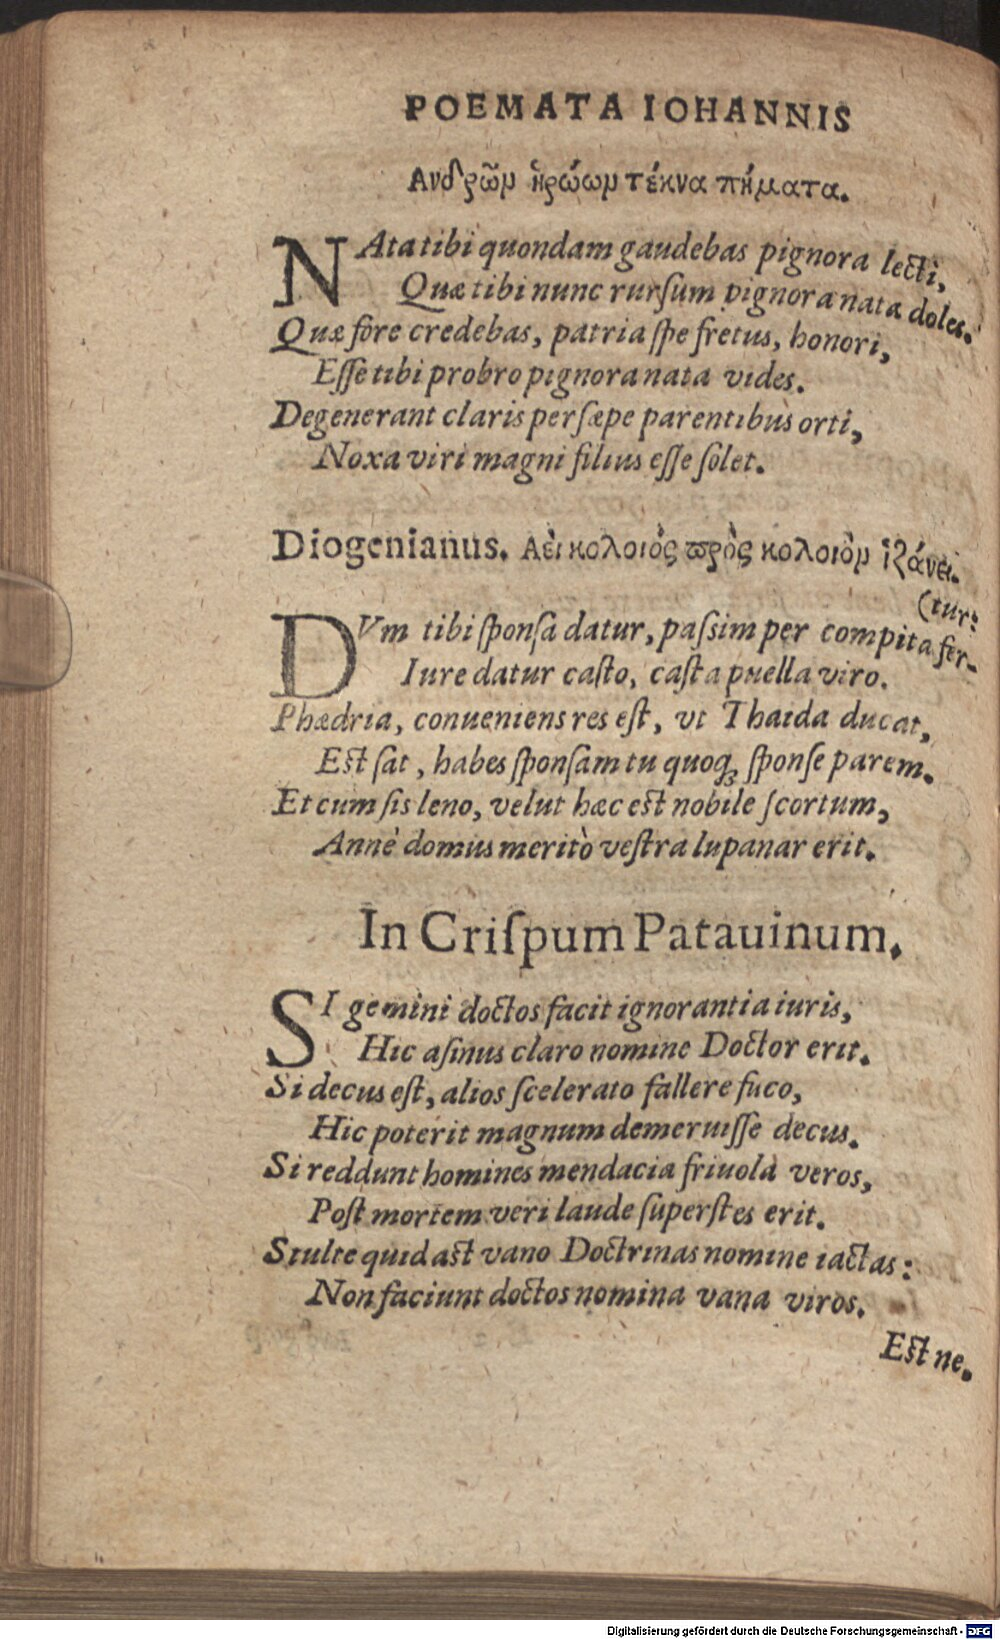 POEMATA IOHANNIS
Ανδρῶν ἡρώων τέκνα πήματα.
NAta tibi quondam gaudebas pignora lecti,
Quæ tibi nunc rursum pignora nata doles.
Quæ fore credebas, patria spe fretus, honori,
Esse tibi probro pignora nata vides.
Degenerant claris persæpe parentibus orti,
Noxa viri magni filius esse solet.
Diogenianus. Αὲι κολοιὸς πρὸς κολοιὸν ἱζάνει.
(tur:
DVm tibi sponsa datur, passim per compita fer-
Iure datur casto, casta puella viro.
Phædria, conueniens res est, vt Thaida ducat,
Est sat, habes sponsam tu quoqꝫ sponse parem.
Et cum sis leno, velut hæc est nobile scortum,
Annè domus meritò vestra lupanar erit.
In Crispum Patauinum.
SI gemini doctos facit ignorantia iuris,
Hic asinus claro nomine Doctor erit.
Si decus est, alios scelerato fallere fuco,
Hic poterit magnum demeruisse decus.
Si reddunt homines mendacia friuola veros,
Post mortem veri laude superstes erit.
Stulte quid ast vano Doctrinas nomine iactas:
Non faciunt doctos nomina vana viros.
Est ne.
Digitalisierung gefördert durch die Deutsche Forschungsgemeinschaft - DFG